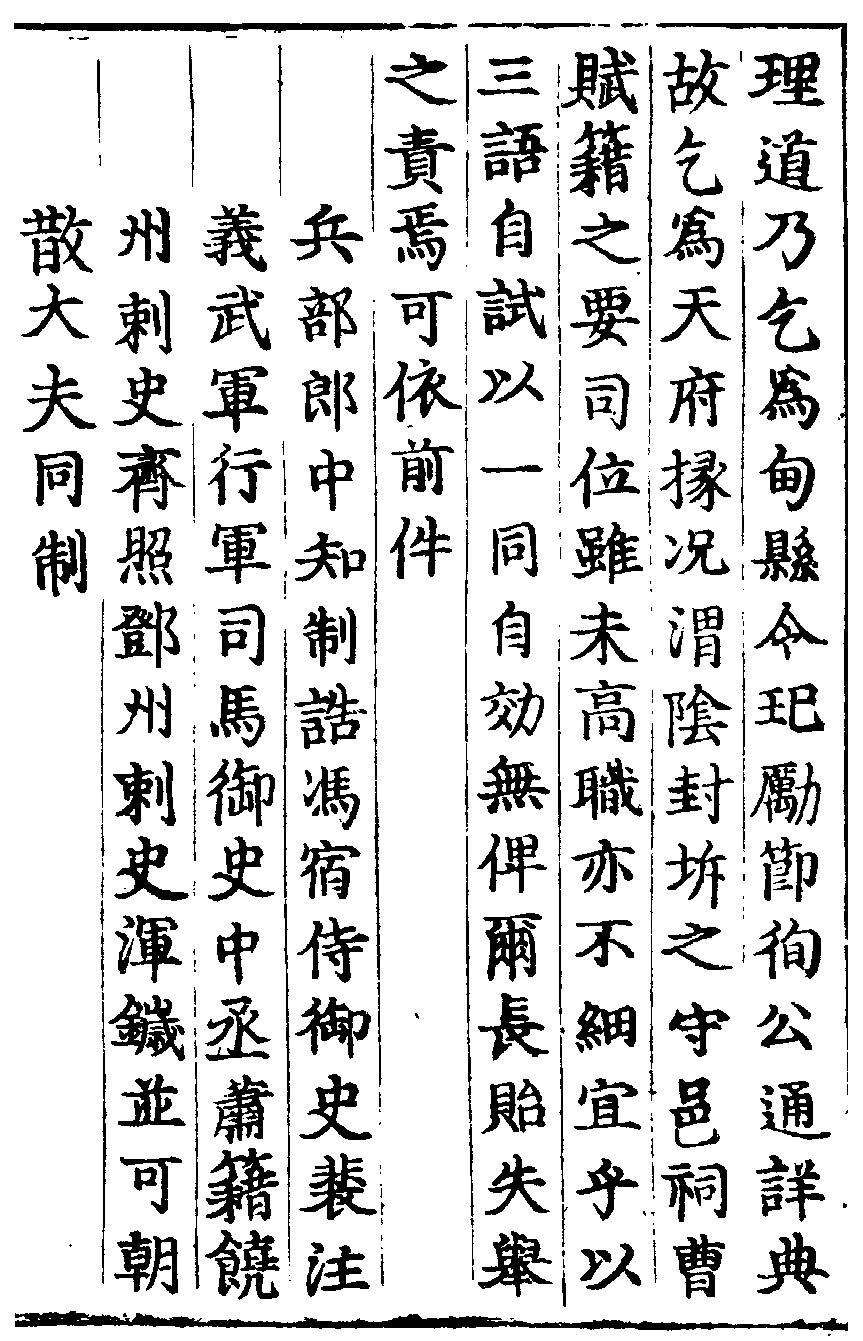 理道乃乞為甸縣令玘勵節徇公通詳典
故乞為天府掾况渭陰封坼之守邑祠曹
賦籍之要司位雖未高職亦不細宜乎以
三語自試以一同自効無俾爾長貽失舉
之責焉可依前件
兵部郎中知制誥馮宿侍御史裴注
義武軍行軍司馬御史中丞蕭籍饒
州刺史齊照鄧州刺史渾鐬並可朝
散大夫同制